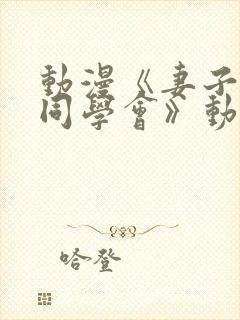 動漫《妻子
同學會》動
哈登